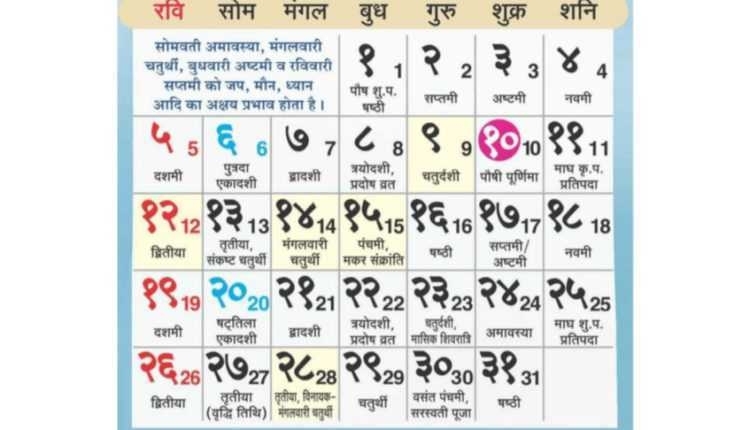 रवि सोम मंगल बुध गुरु शुक्र शनि
सोमवती अमावस्या, मंगलवारी
चतुर्थी, बुधवारी अष्टमी व रविवारी
सप्तमी को जप, मौन, ध्यान
आदि का अक्षय प्रभाव होता है ।
१ 1 २ 2 ३ 3 ४ 4
पौष शु.प. षष्ठी सप्तमी अष्टमी नवमी
५ 5 ६ 6 ७ 7 ८ 8 ९ 9 १० 10 ११ 11
दशमी पुत्रदा एकादशी द्वादशी त्रयोदशी, प्रदोष व्रत चतुर्दशी पौषी पूर्णिमा माघ कृ.प. प्रतिपदा
१२ 12 १३ 13 १४ 14 १५ 15 १६ 16 १७ 17 १८ 18
द्वितीया तृतीया, संकष्ट चतुर्थी मंगलवारी चतुर्थी पंचमी, मकर संक्रांति षष्ठी सप्तमी/ अष्टमी नवमी
१९ 19 २० 20 २१ 21 २२ 22 २३ 23 २४ 24 २५ 25
दशमी षट्तिला एकादशी द्वादशी त्रयोदशी, प्रदोष व्रत चतुर्दशी, मासिक शिवरात्रि अमावस्या माघ शु.प. प्रतिपदा
२६ 26 २७ 27 २८ 28 २९ 29 ३० 30 ३१ 31
द्वितीया तृतीया (वृद्धि तिथि) तृतीया, विनायक- मंगलवारी चतुर्थी चतुर्थी वसंत पंचमी, सरस्वती पूजा षष्ठी